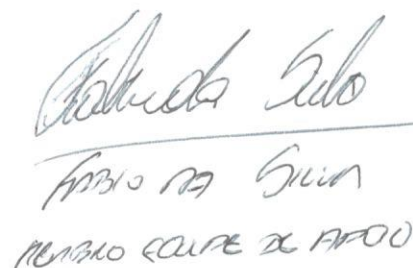 Fabio da Silva
FABIO DA SILVA
MEMBRO EQUIPE DE APOIO